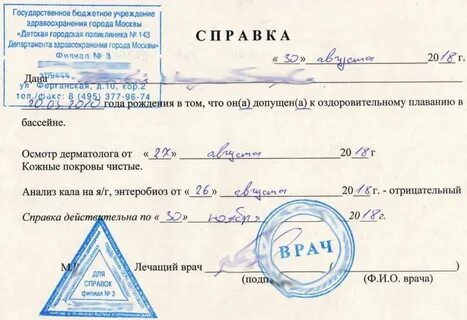 Государственное бюджетное учреждение
здравоохранения города Москвы
«Детская городская поликлиника № 143
Департамента здравоохранения города Москвы»
Филиал № 3
ул Ферганская, д.10, кор.2
тел./факс: 8 (495) 377-96-74
СПРАВКА
« 30 » августа 2018 г
Дана
20.03.2010 года рождения в том, что он(а) допущен(а) к оздоровительному плаванию в
бассейне.
Осмотр дерматолога от «27» августа 2018 г
Кожные покровы чистые.
Анализ кала на я/г, энтеробиоз от «26» августа 2018 г - отрицательный
Справка действительна по «30» ноября 2018 г.
Лечащий врач
(Ф.И.О. врача)
ВРАЧ
ДЛЯ
СПРАВОК
филиал № 3